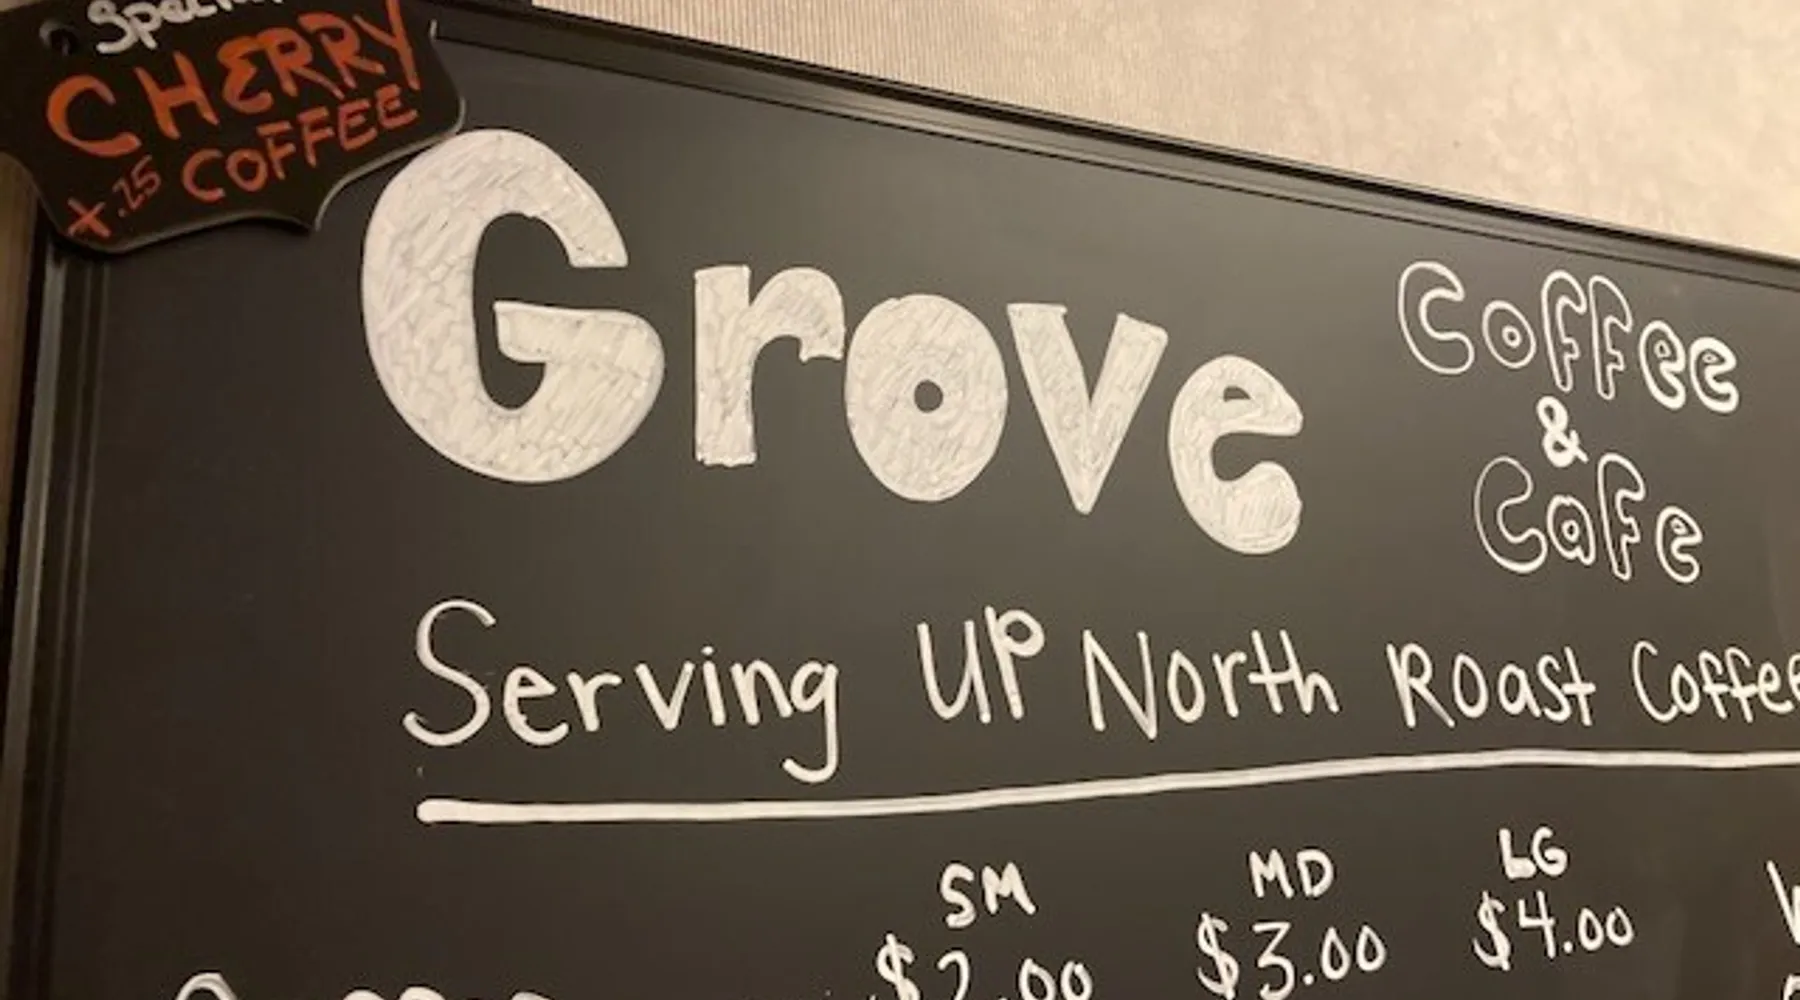 CHERRY
COFFEE
+.25
Grove
Coffee
&
Cafe
Serving UP North Roast Coffee
SM MD LG
$2.00 $3.00 $4.00